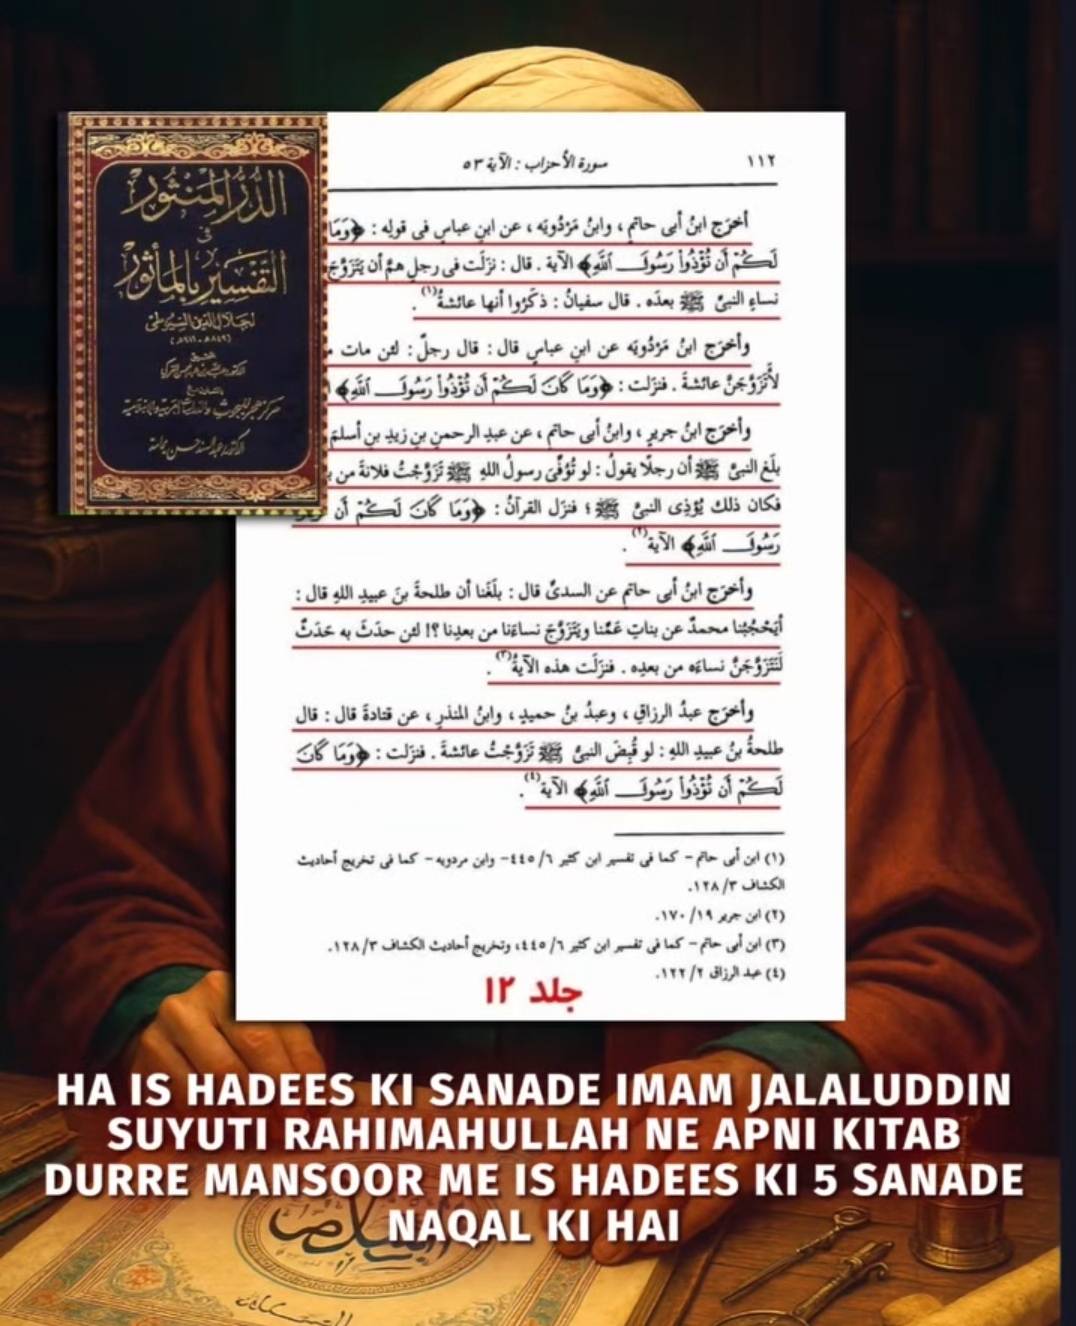 الدُّرُّ المَنْثُور
فى
التَّفْسِيرِ بِالمَأْثُور
لجلال الدين السيوطى
(٨٤٩هـ - ٩١١هـ)
تحقيق
الدكتور عبد السند حسن يمامة
١١٢
سورة الأحزاب : الآية ٥٣
أخرَج ابنُ أبى حاتمٍ ، وابنُ مَرْدُويَه ، عن ابنِ عباسٍ فى قولِه : ﴿وَمَا
لَكُمْ أَن تُؤْذُوا رَسُولَ اللَّهِ﴾ الآية . قال : نزَلَت فى رجلٍ همَّ أن يَتَزَوَّجَ
نساءِ النبىِّ ﷺ بعدَه . قال سفيانُ : ذكَرُوا أنها عائشةُ(١) .
وأخرَج ابنُ مَرْدُويَه عن ابنِ عباسٍ قال : قال رجلٌ : لئن مات
لأَتَزَوَّجَنَّ عائشةَ . فنزَلت : ﴿وَمَا كَانَ لَكُمْ أَن تُؤْذُوا رَسُولَ اللَّهِ﴾
وأخرَج ابنُ جريرٍ ، وابنُ أبى حاتمٍ ، عن عبدِ الرحمنِ بنِ زيدِ بنِ أسلمَ
بلَغ النبىَّ ﷺ أن رجلًا يقولُ : لو تُوُفِّىَ رسولُ اللهِ ﷺ تَزَوَّجْتُ فلانةَ من
فكان ذلك يُؤْذِى النبىَّ ﷺ ؛ فنزَل القرآنُ : ﴿وَمَا كَانَ لَكُمْ أَن
رَسُولَ اللَّهِ﴾ الآية(٢) .
وأخرَج ابنُ أبى حاتمٍ عن السدىِّ قال : بلَغَنا أن طلحةَ بنَ عبيدِ اللهِ قال :
أيَحْجُبُنا محمدٌ عن بناتِ عَمِّنا ويَتَزَوَّجُ نساءَنا من بعدِنا ؟! لئن حدَثَ به حَدَثٌ
لَنَتَزَوَّجَنَّ نساءَه من بعدِه . فنزَلَت هذه الآيةُ(٣) .
وأخرَج عبدُ الرزاقِ ، وعبدُ بنُ حميدٍ ، وابنُ المنذرِ ، عن قتادةَ قال : قال
طلحةُ بنُ عبيدِ اللهِ : لو قُبِضَ النبىُّ ﷺ تَزَوَّجْتُ عائشةَ . فنزَلت : ﴿وَمَا كَانَ
لَكُمْ أَن تُؤْذُوا رَسُولَ اللَّهِ﴾ الآية(٤) .
(١) ابن أبى حاتم - كما فى تفسير ابن كثير ٦/ ٤٤٥- وابن مردويه - كما فى تخريج أحاديث
الكشاف ٣/ ١٢٨.
(٢) ابن جرير ١٩/ ١٧٠.
(٣) ابن أبى حاتم - كما فى تفسير ابن كثير ٦/ ٤٤٥، وتخريج أحاديث الكشاف ٣/ ١٢٨.
(٤) عبد الرزاق ٢/ ١٢٢.
جلد ١٢
HA IS HADEES KI SANADE IMAM JALALUDDIN
SUYUTI RAHIMAHULLAH NE APNI KITAB
DURRE MANSOOR ME IS HADEES KI 5 SANADE
NAQAL KI HAI